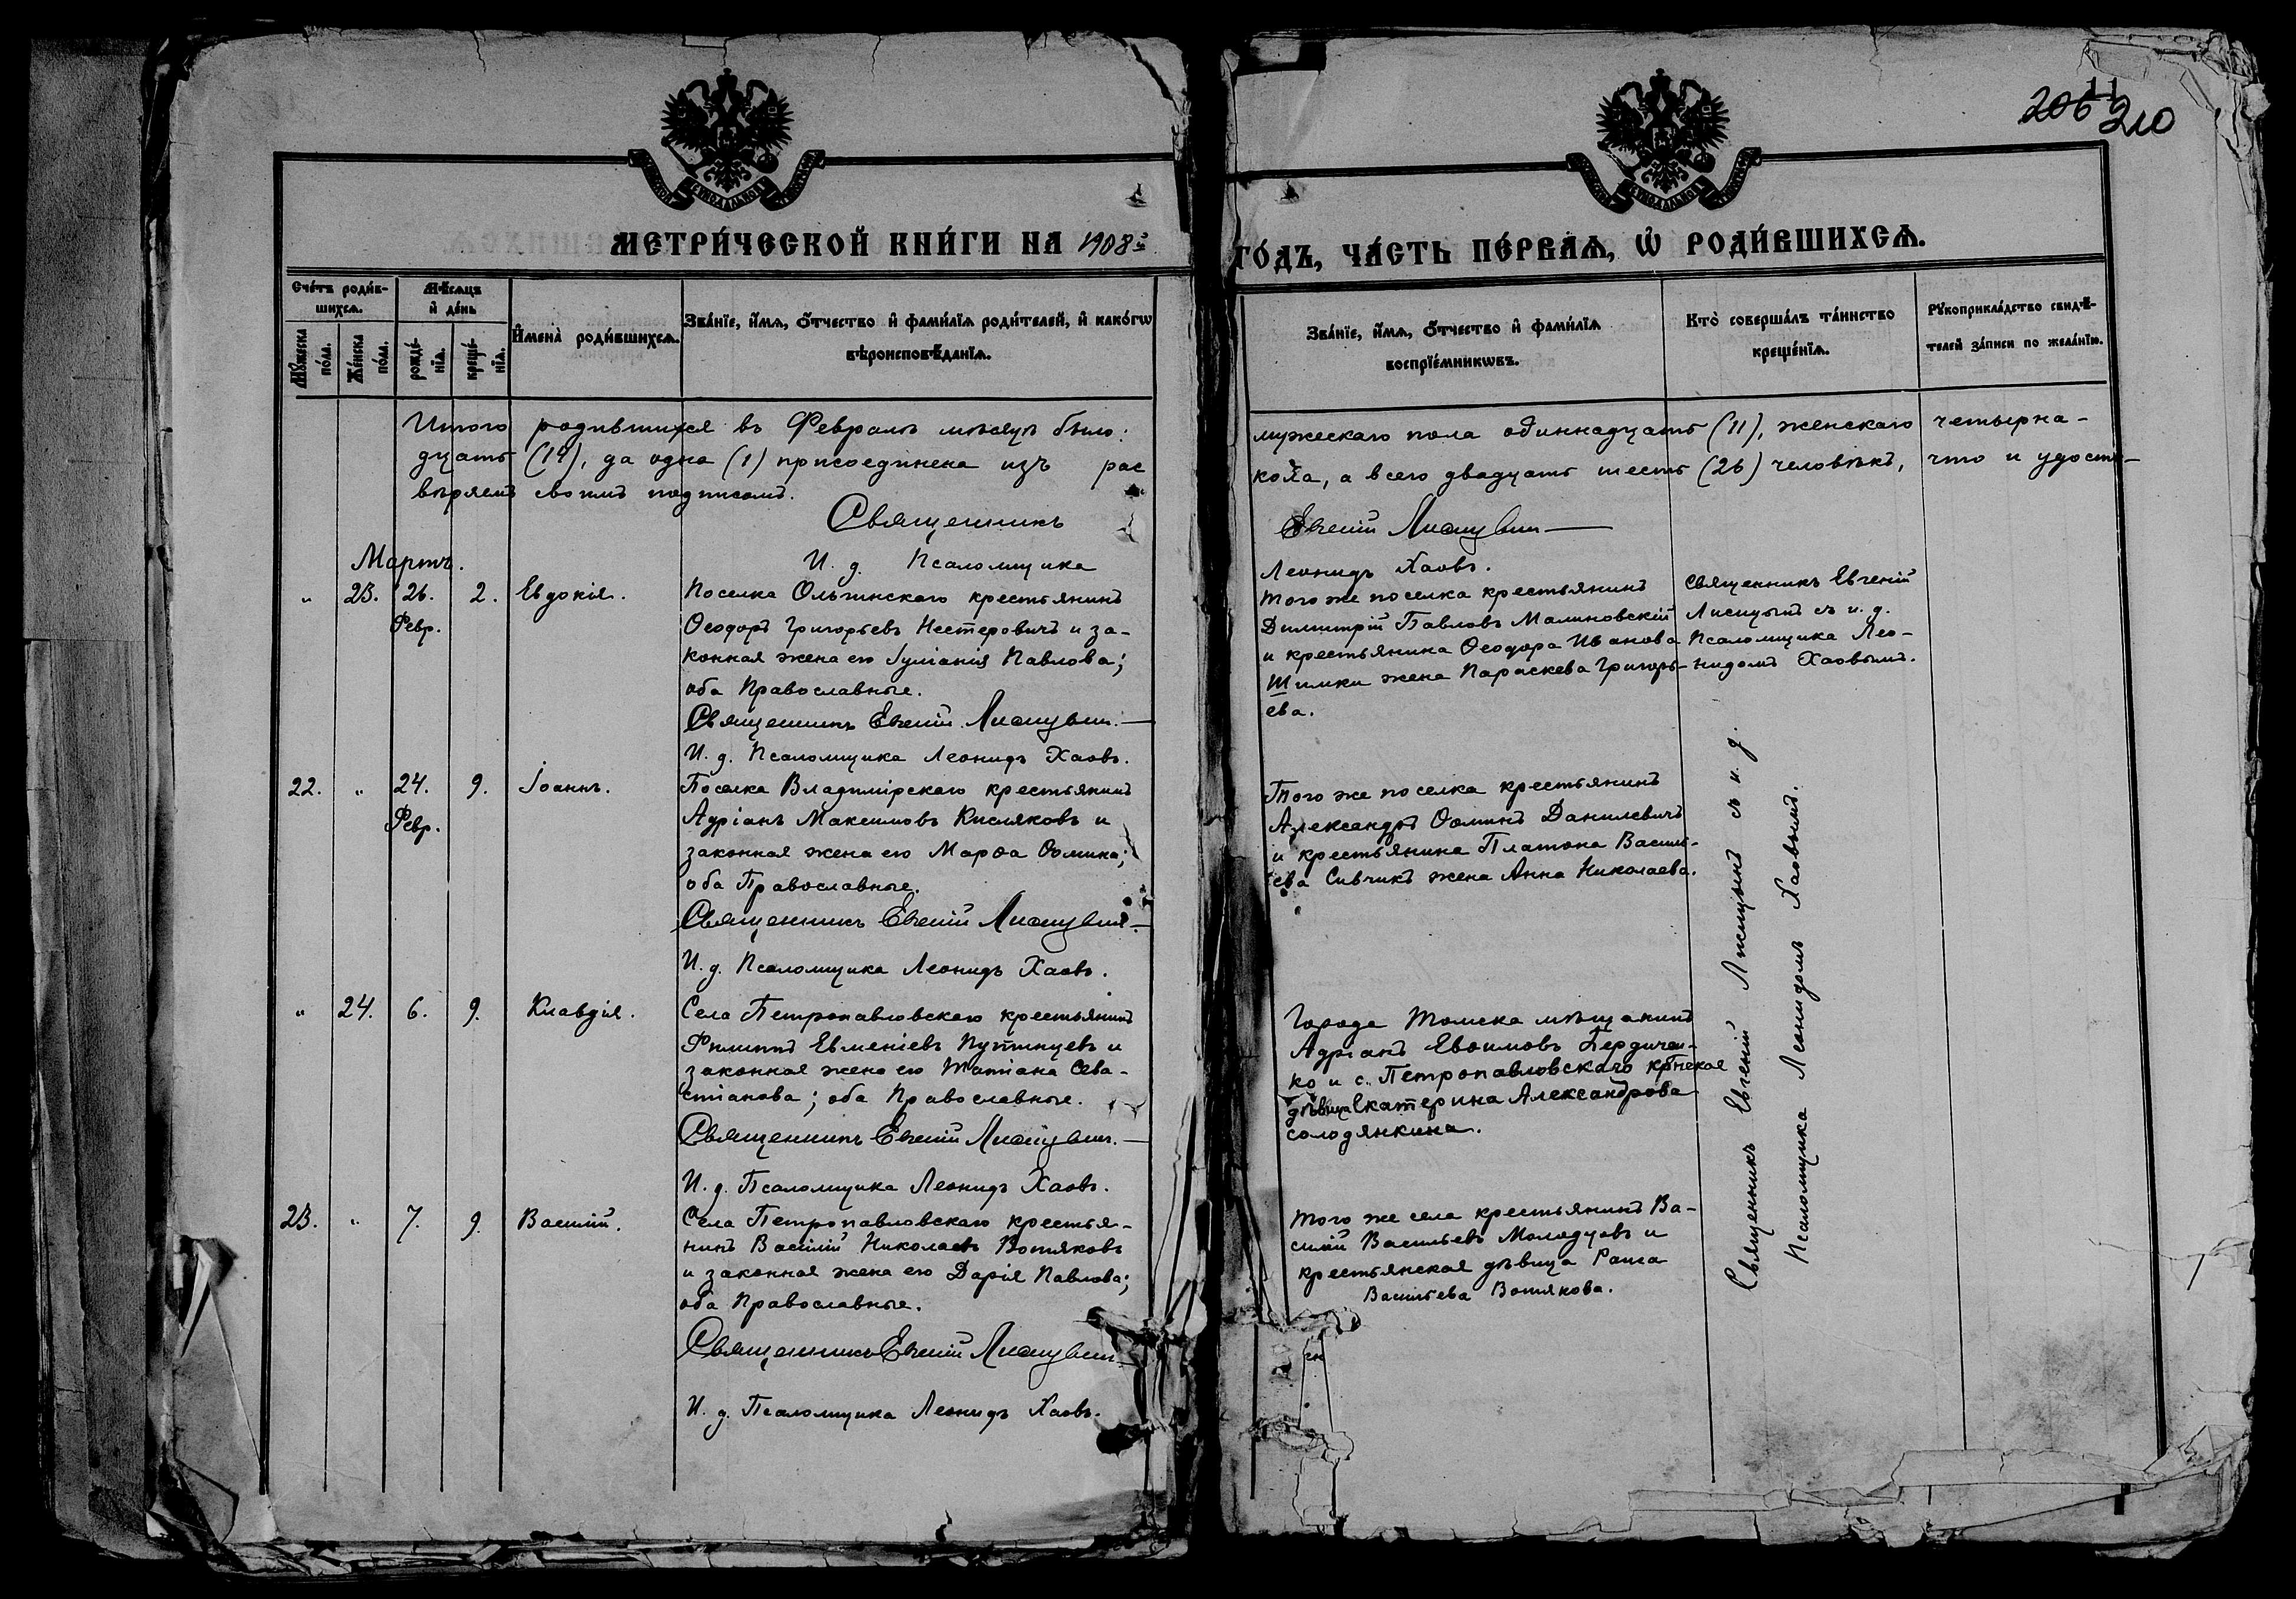 206 11 210
МЕТРИ́ЧЕСКОЙ КНИ́ГИ НА 1908й
ГО́ДЪ, ЧА́СТЬ ПЕ́РВАѦ, Ѡ҆ РОДИ́ВШИХСѦ.
Сче́тъ роди́в-
шихсѧ.
Мꙋ́жеска по́ла.
Же́нска по́ла.
Мѣ́сѧцъ
и҆ де́нь
рожде́-
нїѧ.
креще́-
нїѧ.
И҆мена̀ роди́вшихсѧ.
Зва́нїе, и҆́мѧ, ѻ҆́тчество и҆ фами́лїѧ роди́телей, и҆ како́гѡ
вѣроисповѣ́данїѧ.
Зва́нїе, и҆́мѧ, ѻ҆́тчество и҆ фами́лїѧ
воспрїе́мникѡвъ.
Кто̀ соверша́лъ та́инство
креще́нїѧ.
Рꙋкоприкла́дство свидѣ́-
телей за́писи по жела́нїю.
Итого родившихся въ Февралѣ мѣсяцѣ было:
мужескаго пола одиннадцать (11), женскаго четырна-
дцать (14), да одна (1) присоединена изъ рас
кола, а всего двадцать шесть (26) человѣкъ, что и удосто-
вѣряемъ своимъ подписомъ.
Священникъ
Евгеній Лисицынъ
И. д. Псаломщика
Леонидъ Хаовъ.
Мартъ.
" 23. 26. 2. Евдокія.
Февр.
Поселка Ольгинскаго крестьянинъ
Ѳеодоръ Григорьевъ Нестеровичъ и за-
конная жена его Іуліанія Павлова;
оба Православные.
Священникъ Евгеній Лисицынъ.
И. д. Псаломщика Леонидъ Хаовъ.
Того же поселка крестьянинъ
Димитрій Павловъ Малиновскій
и крестьянина Ѳеодора Иванова
Шимки жена Параскева Григорь-
ева.
Священникъ Евгеній
Лисицынъ съ и. д.
Псаломщика Лео-
нидомъ Хаовымъ.
22. " 24. 9. Іоаннъ.
Февр.
Поселка Владимірскаго крестьянинъ
Адріанъ Максимовъ Кисляковъ и
законная жена его Марѳа Ѳомина;
оба Православные.
Священникъ Евгеній Лисицынъ.
И. д. Псаломщика Леонидъ Хаовъ.
Того же поселка крестьянинъ
Александръ Ѳоминъ Данилевичъ
и крестьянина Платона Василь-
ева Сивчикъ жена Анна Николаева.
" 24. 6. 9. Клавдія.
Села Петропавловскаго крестьянинъ
Филиппъ Евменіевъ Путинцевъ и
законная жена его Татіана Сева-
стіанова; оба Православные.
Священникъ Евгеній Лисицынъ.
И. д. Псаломщика Леонидъ Хаовъ.
Города Томска мѣщанинъ
Адріанъ Евѳимовъ Бердичен-
ко и с. Петропавловскаго крѣнская
дѣвица Екатерина Александрова
Солодянкина.
23. " 7. 9. Василій.
Села Петропавловскаго крестья-
нинъ Василій Николаевъ Вотяковъ
и законная жена его Дарія Павлова;
оба Православные.
Священникъ Евгеній Лисицынъ
И. д. Псаломщика Леонидъ Хаовъ.
Того же села крестьянинъ Ва-
силій Васильевъ Молодцовъ и
крестьянская дѣвица Раиса
Васильева Вотякова.
Священникъ Евгеній Лисицынъ съ и. д.
Псаломщика Леонидомъ Хаовымъ.